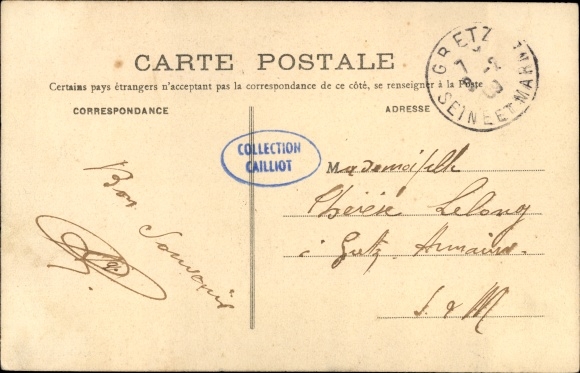 CARTE POSTALE
Certains pays étrangers n'acceptant pas la correspondance de ce côté, se renseigner à la Poste
CORRESPONDANCE
ADRESSE
GRETZ
SEINE ET MARNE
COLLECTION
CAILLIOT
Bon Souvenir
Mademoiselle
Thérèse Lelong
à Gretz Armainv.
S. & M